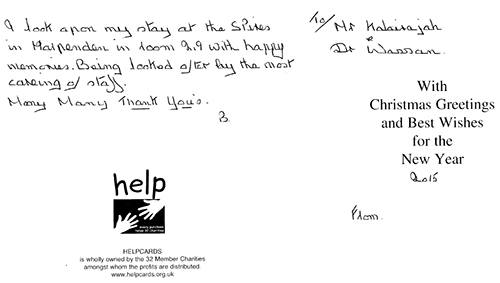 I look apon my stay at the Spires
in Harpenden in room 29 with happy
memories. Being looked after by the most
careing of staff.
Many Many Thank You's.
B
To/ Mr Kalairajah
&
Dr Wassan.
With
Christmas Greetings
and Best Wishes
for the
New Year
2015
From.
help
HELPCARDS
is wholly owned by the 32 Member Charities
amongst whom the profits are distributed
www.helpcards.org.uk